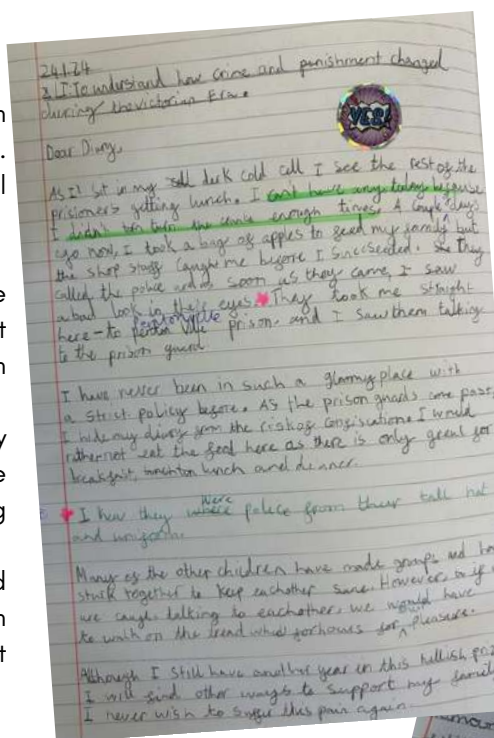 24.1.24
L.I: To understand how crime and punishment changed
during the victorian Era.
YES!
Dear Diary,
As I sit in my dark cold cell I see the rest of the
prisoners getting lunch. I can't have any today because
I didn't turn the crank enough times. A couple days
ago now, I took a bag of apples to feed my family but
the shop staff caught me before I succseeded. They
called the police and as soon as they came, I saw
a bad look in their eyes. They took me straight
here - to pentonville prison, and I saw them talking
to the prison guard
I have never been in such a gloomy place with
a strist policy before. As the prison guards come past,
I hide my diary from the risk of I would
rather not eat the food here as there is only gruel for
breakfast, lunch and dinner.
I how they were police from their tall hat
and uniform.
Many of the other children have made groups and
stuck together to keep eachother sane. However, if
we caugh talking to eachother, we would have
to walk on the tread wheel for hours for pleasure.
Although I still have another year in this hellish
I will find other ways to support my
I never wish to suffer this pain again.